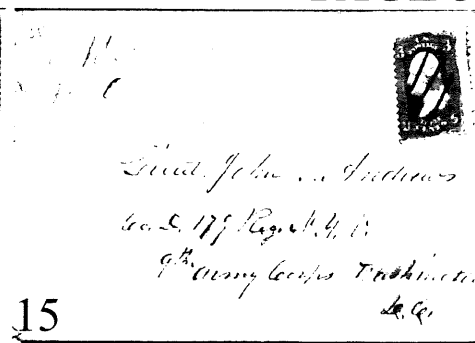 Lieut. John Andrews
Co. D. 179 Reg. N.Y. V.
9th Army Corps Washington
D.C.
15